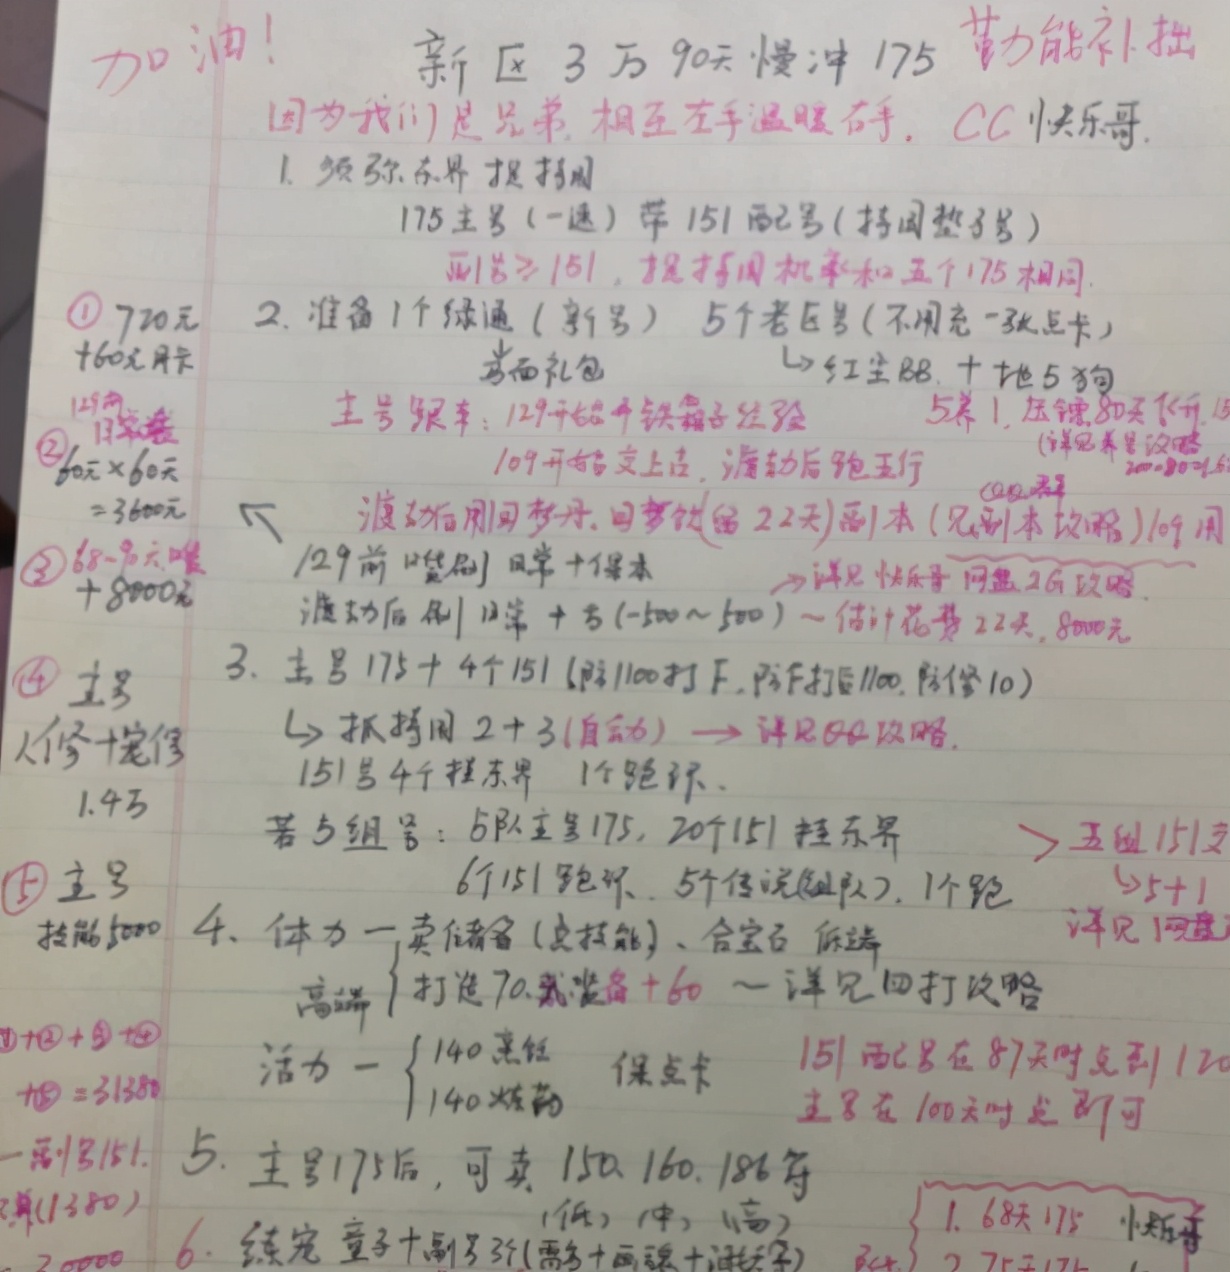 加油!
新区3万90天慢冲175
勤能补拙
因为我们是兄弟,相互左手温暖右手.
CC快乐哥.
1. 须弥东界捉持国
175主号(一速)带151配号(持国垫子号)
副号≥151,捉持国机率和五个175相同.
① 720元
+60元月卡
2. 准备1个绿通(新号) 5个老区号(不用充一张点卡)
当面礼包
↳红尘BB. + 地5狗
129前
日常
② 60元×60天
=3600元
主号跟车: 129开始开铁箱子经验
5养1, 压锤80天飞升
(详见养号攻略
109开始交上古, 渡劫后跑五行
渡劫后用回梦丹、回梦饮(留22天)副本(见副本攻略)109用
③ 68-90天
+8000元
129前 刷日常+保本
→详见快乐哥网盘2G攻略.
渡劫后刷日常 + 击(-500~500) ~估计花费22天, 8000元
④ 主号
人修+宠修
1.4万
3. 主号175+4个151(防1100打F, 防F打后1100, 防修10)
↳抓持国2+3(自动) → 详见QQ攻略.
151号4个挂东界 1个跑环.
若5组号: 5队主号175, 20个151挂东界
6个151跑环. 5个传说(组队), 1个跑
> 五组151
↳5+1
详见网盘
⑤ 主号
技能5000
4. 体力一卖储备(点技能)、合宝石 低端
高端 打造70.武装备+60 ~详见回打攻略
①+②+③+④
+⑤=31380
活力一 140烹饪
140炼药
保点卡
151配号在87天时点到120
主号在100天时点即可
一副号151.
(1380)
30000
5. 主号175后, 可卖150.160.186等
(低) (中) (高)
6. 练宠童子+副号3个
1. 68天175 快乐哥
2. 75天175